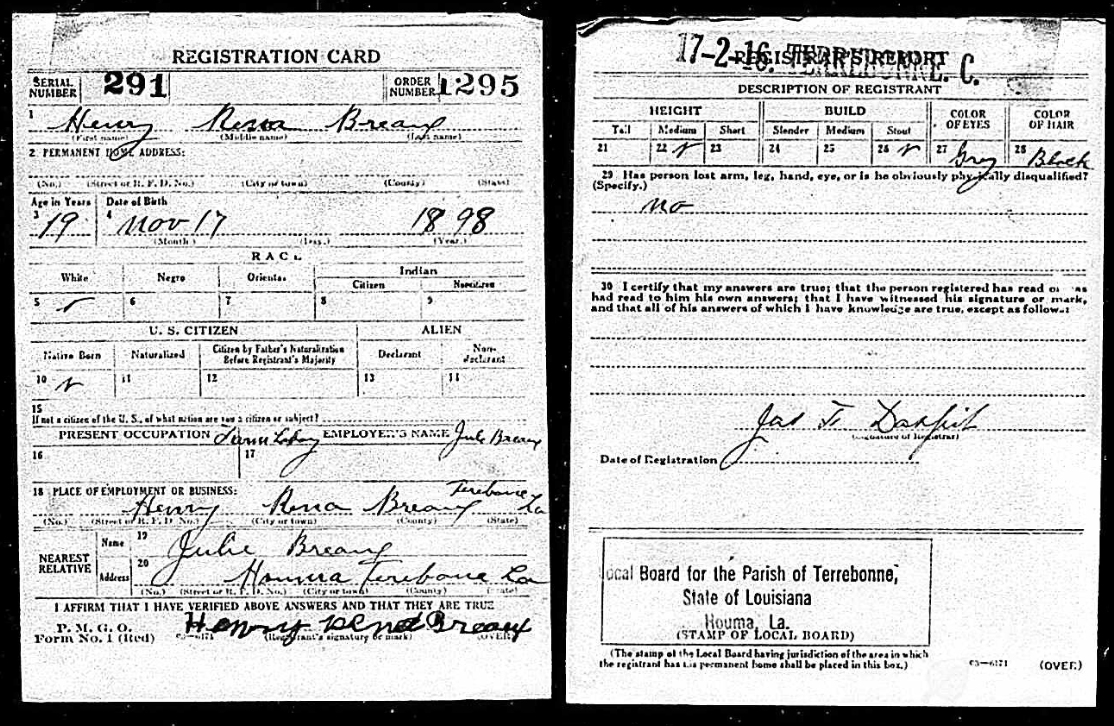 REGISTRATION CARD
SERIAL NUMBER 291 ORDER NUMBER 1295
1 Henry Rena Breaux
(First name) (Middle name) (Last name)
2 PERMANENT HOME ADDRESS:
(No.) (Street or R. F. D. No.) (City or town) (County) (State)
Age in Years Date of Birth
3 19 4 Nov 17 1898
(Month.) (Day.) (Year.)
RACE
White Negro Oriental Indian
Citizen Noncitizen
5 ✓ 6 7 8 9
U. S. CITIZEN ALIEN
Native Born Naturalized Citizen by Father's Naturalization Before Registrant's Majority Declarant Non-declarant
10 ✓ 11 12 13 14
15
If not a citizen of the U. S., of what nation are you a citizen or subject?
PRESENT OCCUPATION EMPLOYER'S NAME Jule Breaux
16 17
18 PLACE OF EMPLOYMENT OR BUSINESS: Terebone
Henry Rena Breaux La
(No.) (Street or R. F. D. No.) (City or town) (County) (State)
NEAREST RELATIVE Name 19 Julie Breaux
Address 20 Houma Terebone La
(No.) (Street or R. F. D. No.) (City or town) (County) (State)
I AFFIRM THAT I HAVE VERIFIED ABOVE ANSWERS AND THAT THEY ARE TRUE
P. M. G. O.
Form No. 1 (Red) 03—6171 Henry Rena Breaux
(Registrant's signature or mark) (OVER)
17-2-16. TERREBONNE. C.
REGISTRAR'S REPORT
DESCRIPTION OF REGISTRANT
HEIGHT BUILD COLOR OF EYES COLOR OF HAIR
Tall Medium Short Slender Medium Stout
21 22 ✓ 23 24 25 26 ✓ 27 Gray 28 Black
29 Has person lost arm, leg, hand, eye, or is he obviously physically disqualified?
(Specify.)
No
30 I certify that my answers are true; that the person registered has read or has
had read to him his own answers; that I have witnessed his signature or mark,
and that all of his answers of which I have knowledge are true, except as follows:
Jas
(Signature of Registrar)
Date of Registration
Local Board for the Parish of Terrebonne,
State of Louisiana
Houma, La.
(STAMP OF LOCAL BOARD)
(The stamp of the Local Board having jurisdiction of the area in which
the registrant has his permanent home shall be placed in this box.)
03—6171 (OVER)